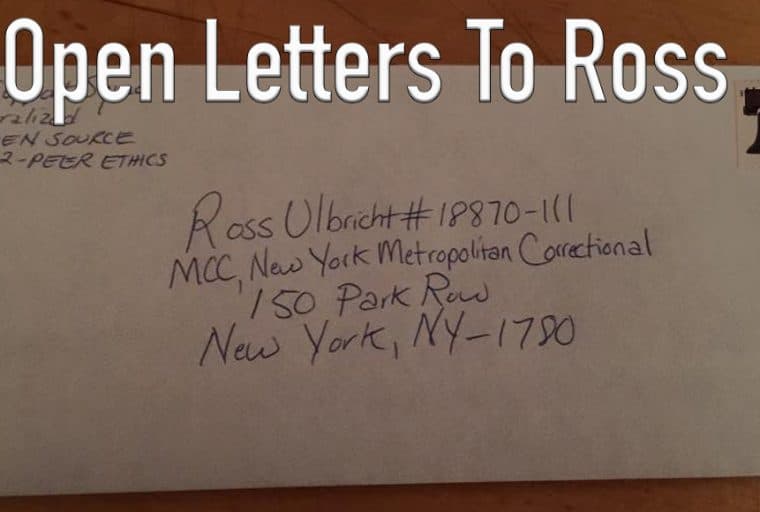 Open Letters To Ross
EN SOURCE
2-PEER ETHICS
Ross Ulbricht # 18870-111
MCC, New York Metropolitan Correctional
150 Park Row
New York, NY-1780